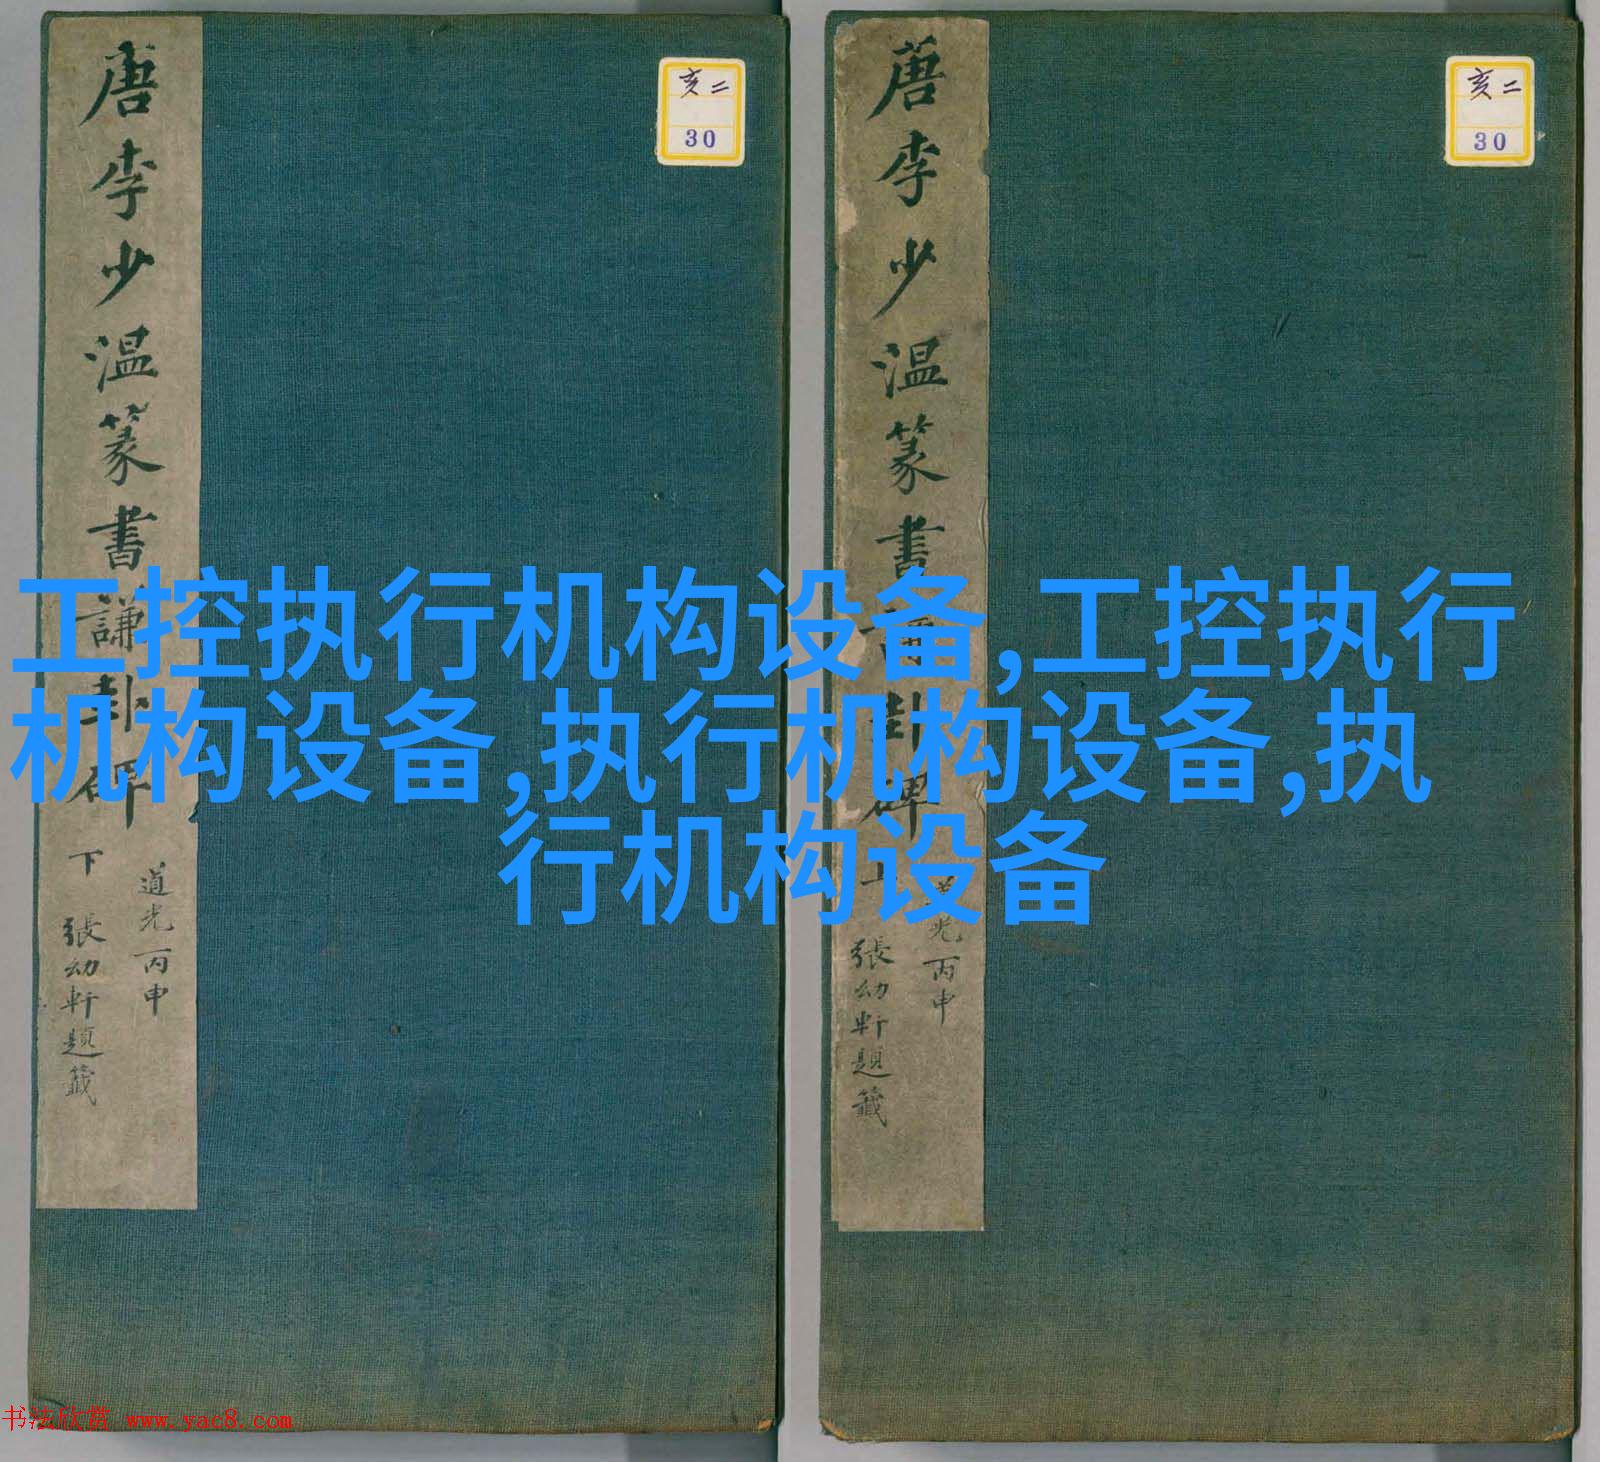 唐李少温篆書謙卦碑
下
道光丙申
張幼軒題籤
亥二
30
唐李少温篆書
卦碑
上
光丙申
張幼軒題籤
亥二
30
工控执行机构设备,工控执行
机构设备,执行机构设备,执
行机构设备
书法欣赏 www.yac8.com